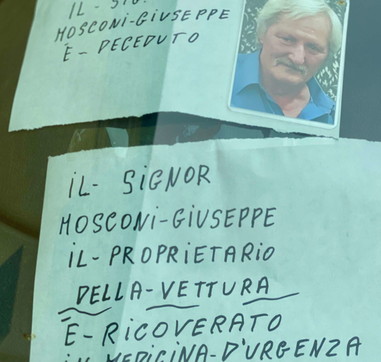 IL - SIG
MOSCONI-GIUSEPPE
E - DECEDUTO
IL- SIGNOR
MOSCONI-GIUSEPPE
IL- PROPRIETARIO
DELLA-VETTURA
E-RICOVERATO
IN MEDICINA-D'URGENZA